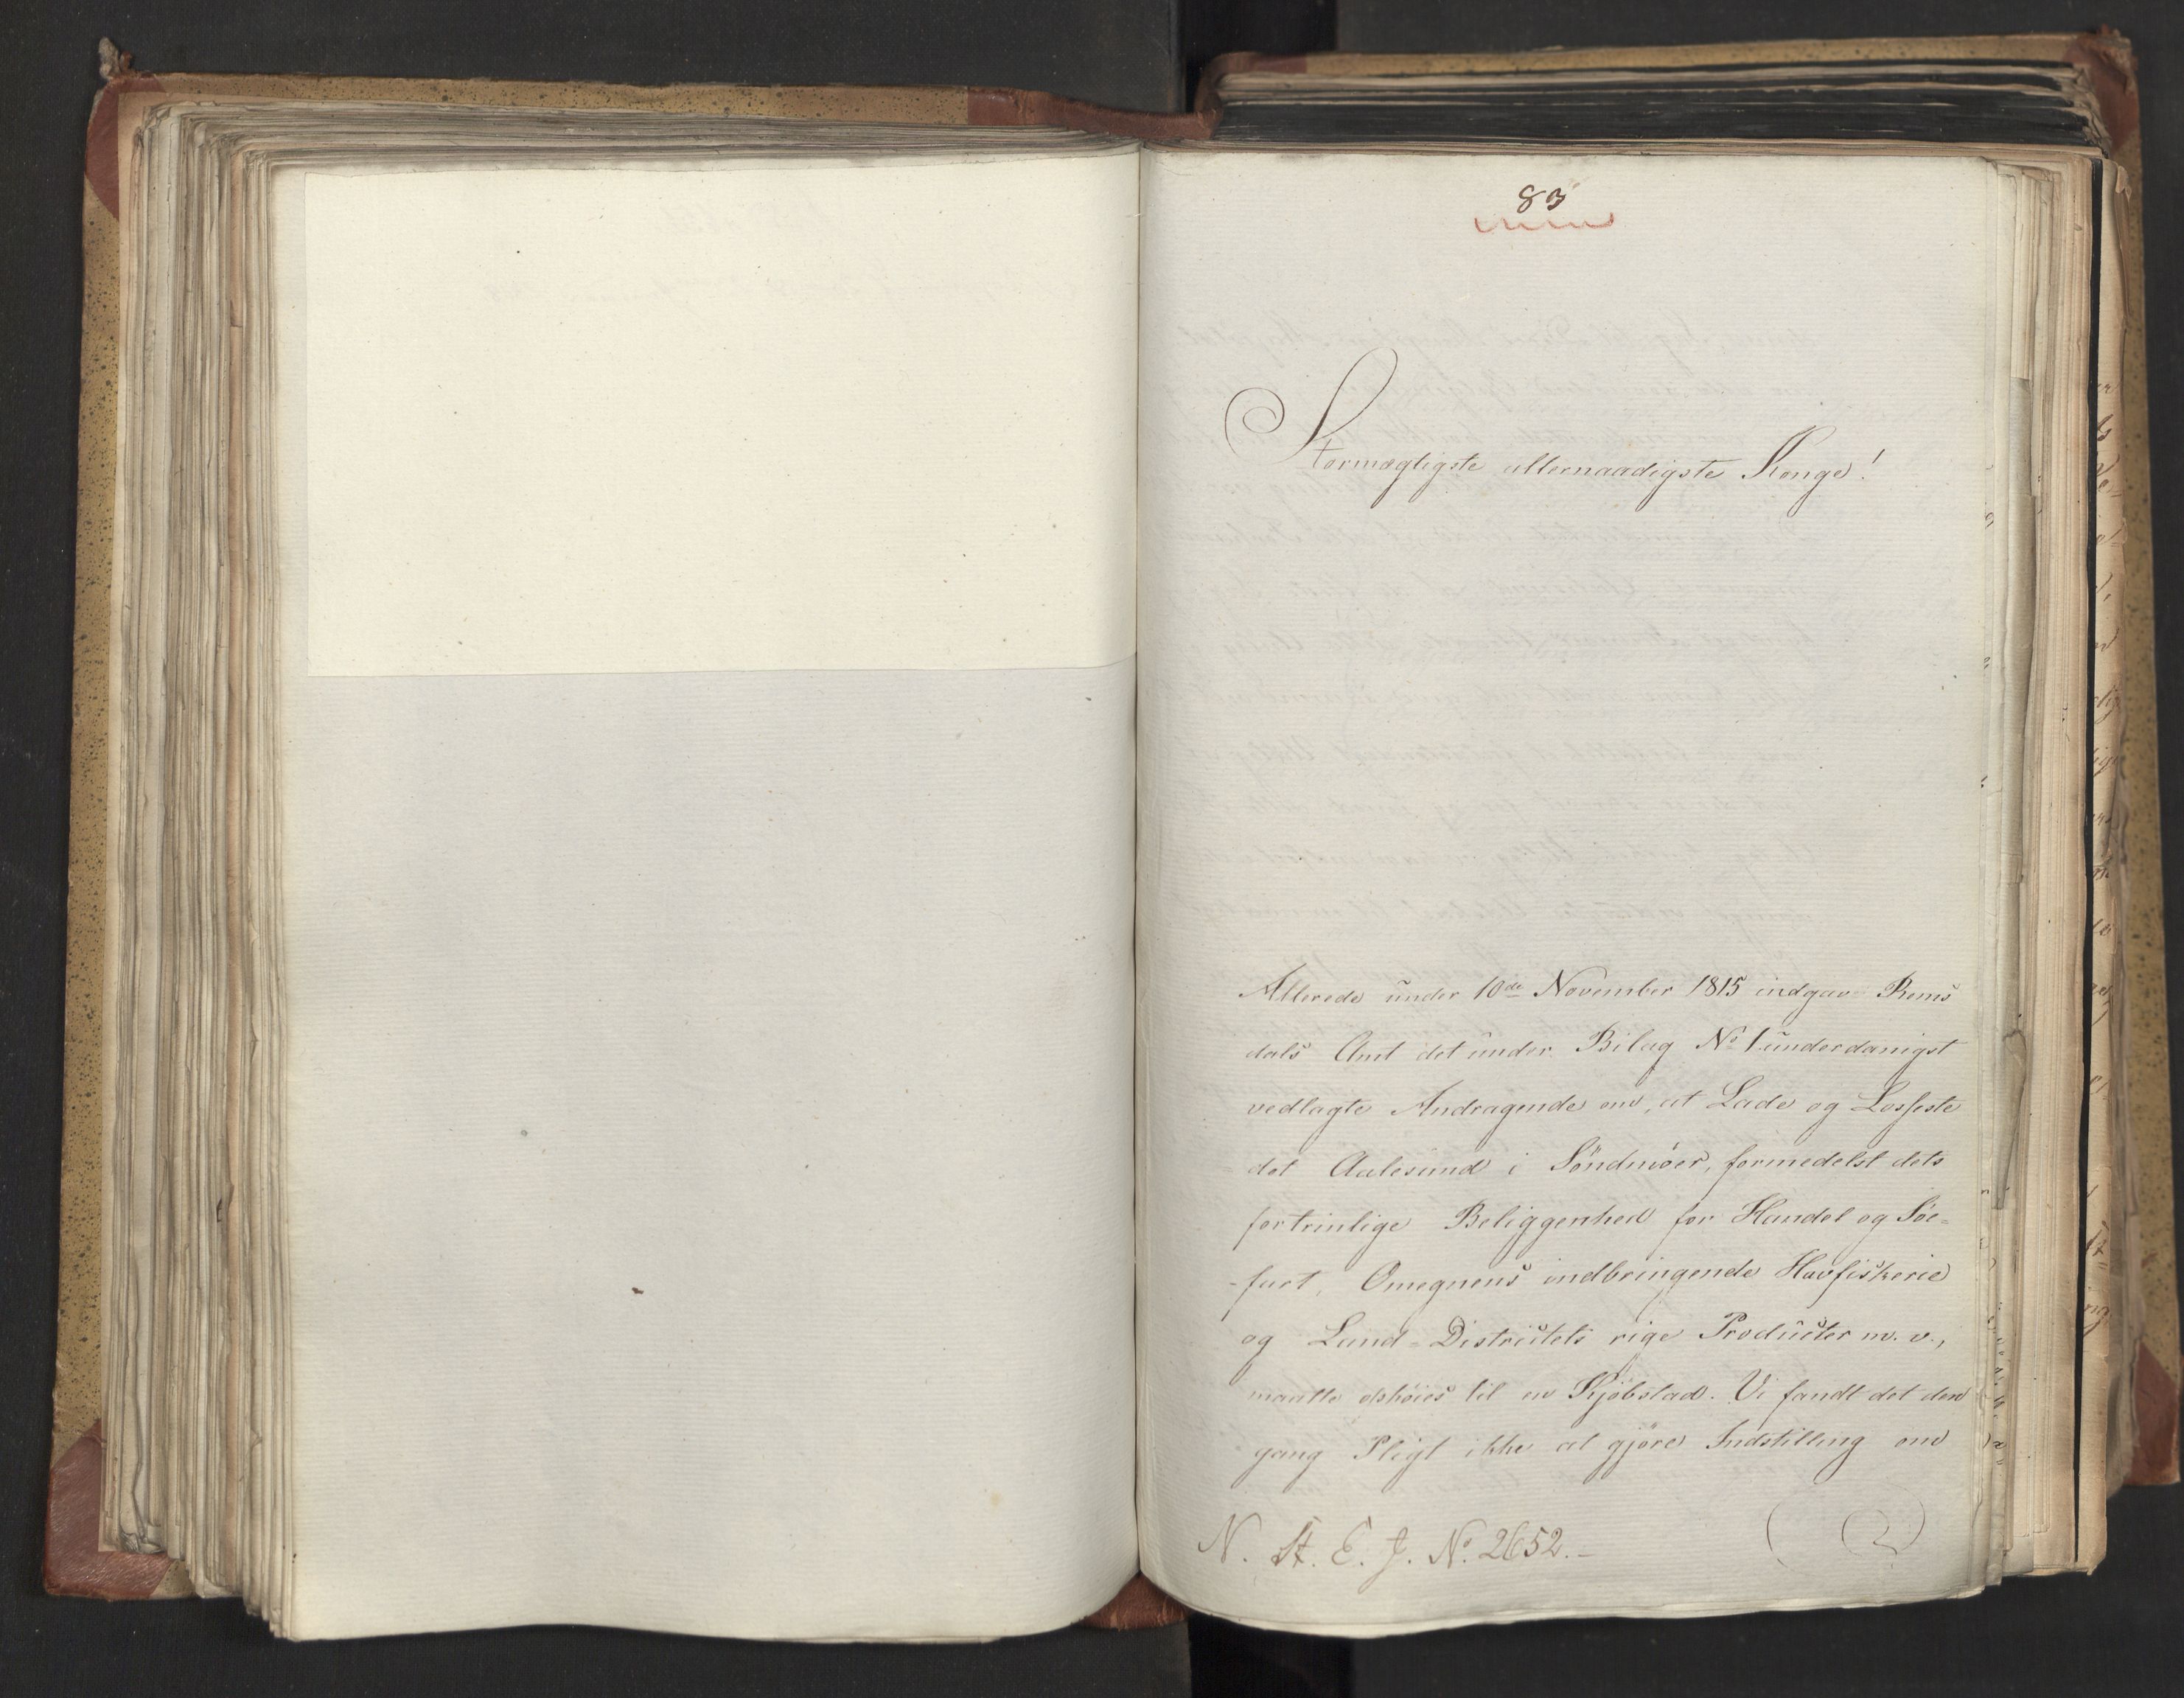 83
Stormægtigste allernaadigste Konge!
Allerede under 10de November 1815 indgav Roms
dals Amt det under Bilag No 1 underdanigst
vedlagte Andragende om, at Lade og Losseste
det Aalesund i Söndmöer, formedelst dets
fortrinlige Beliggenhed for Handel og Söe-
-fart, Omegnens indbringende Havfiskerie
og Land-Districtets rige Producter m. v.,
maatte ophöies til en Kjöbstad. Vi fandt det den
gang Pligt ikke at gjöre Indstilling om
N. St. E. J. No. 2652.-